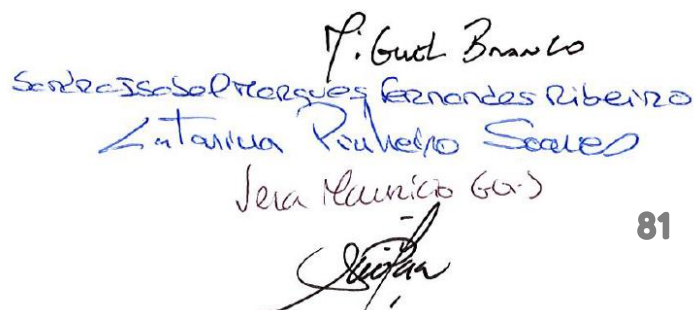 Miguel Branco
Sandra Isabel Marques Fernandes Ribeiro
Catarina Pinheiro Soares
Vera Maurício
81